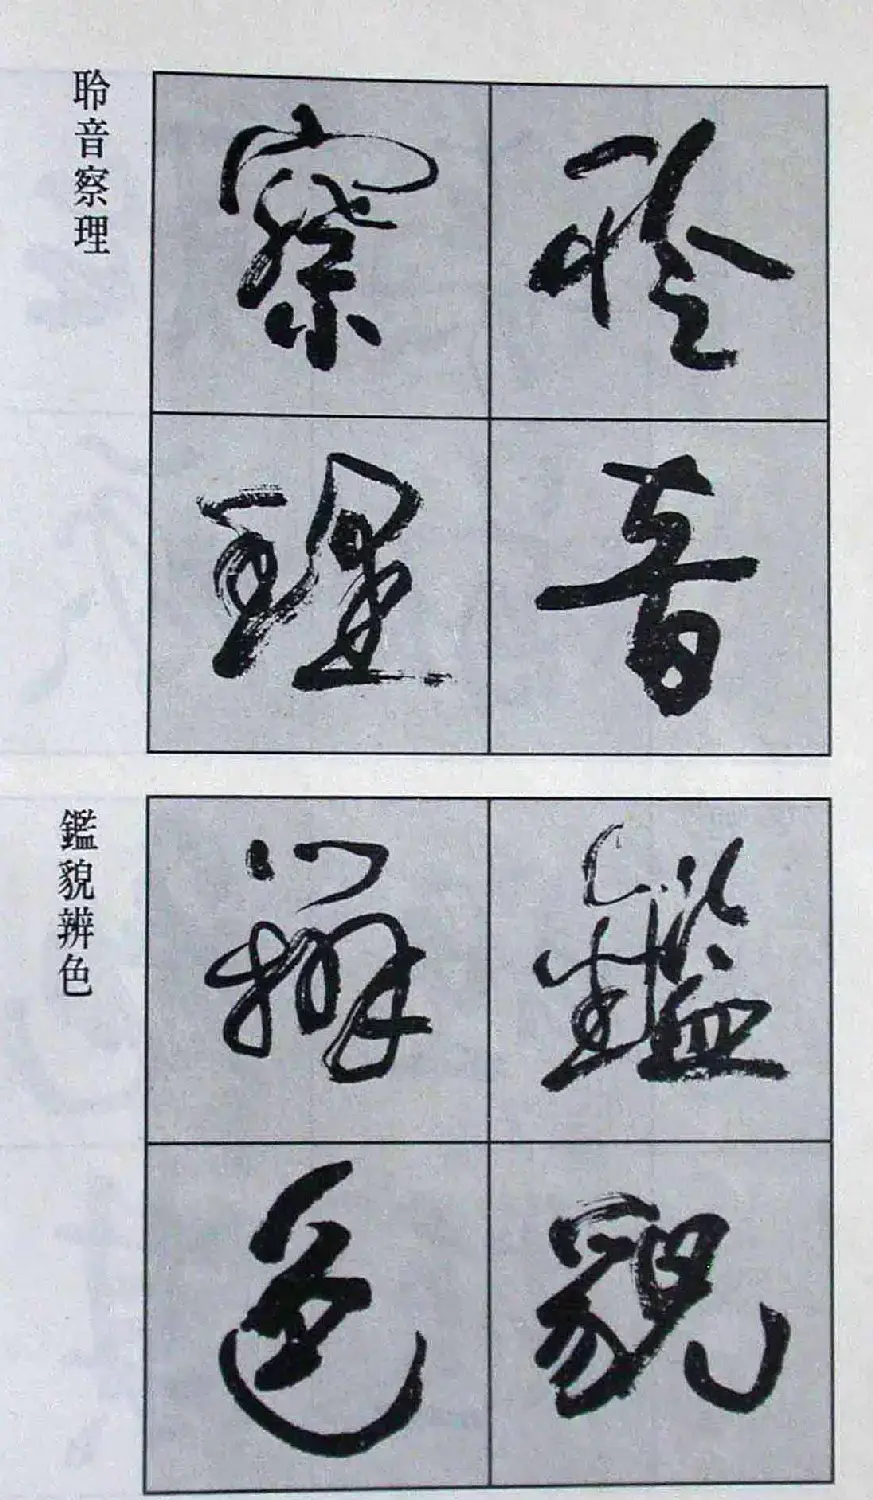 聆音察理
聆音
察理
鑑貌辨色
鑑貌
辨色